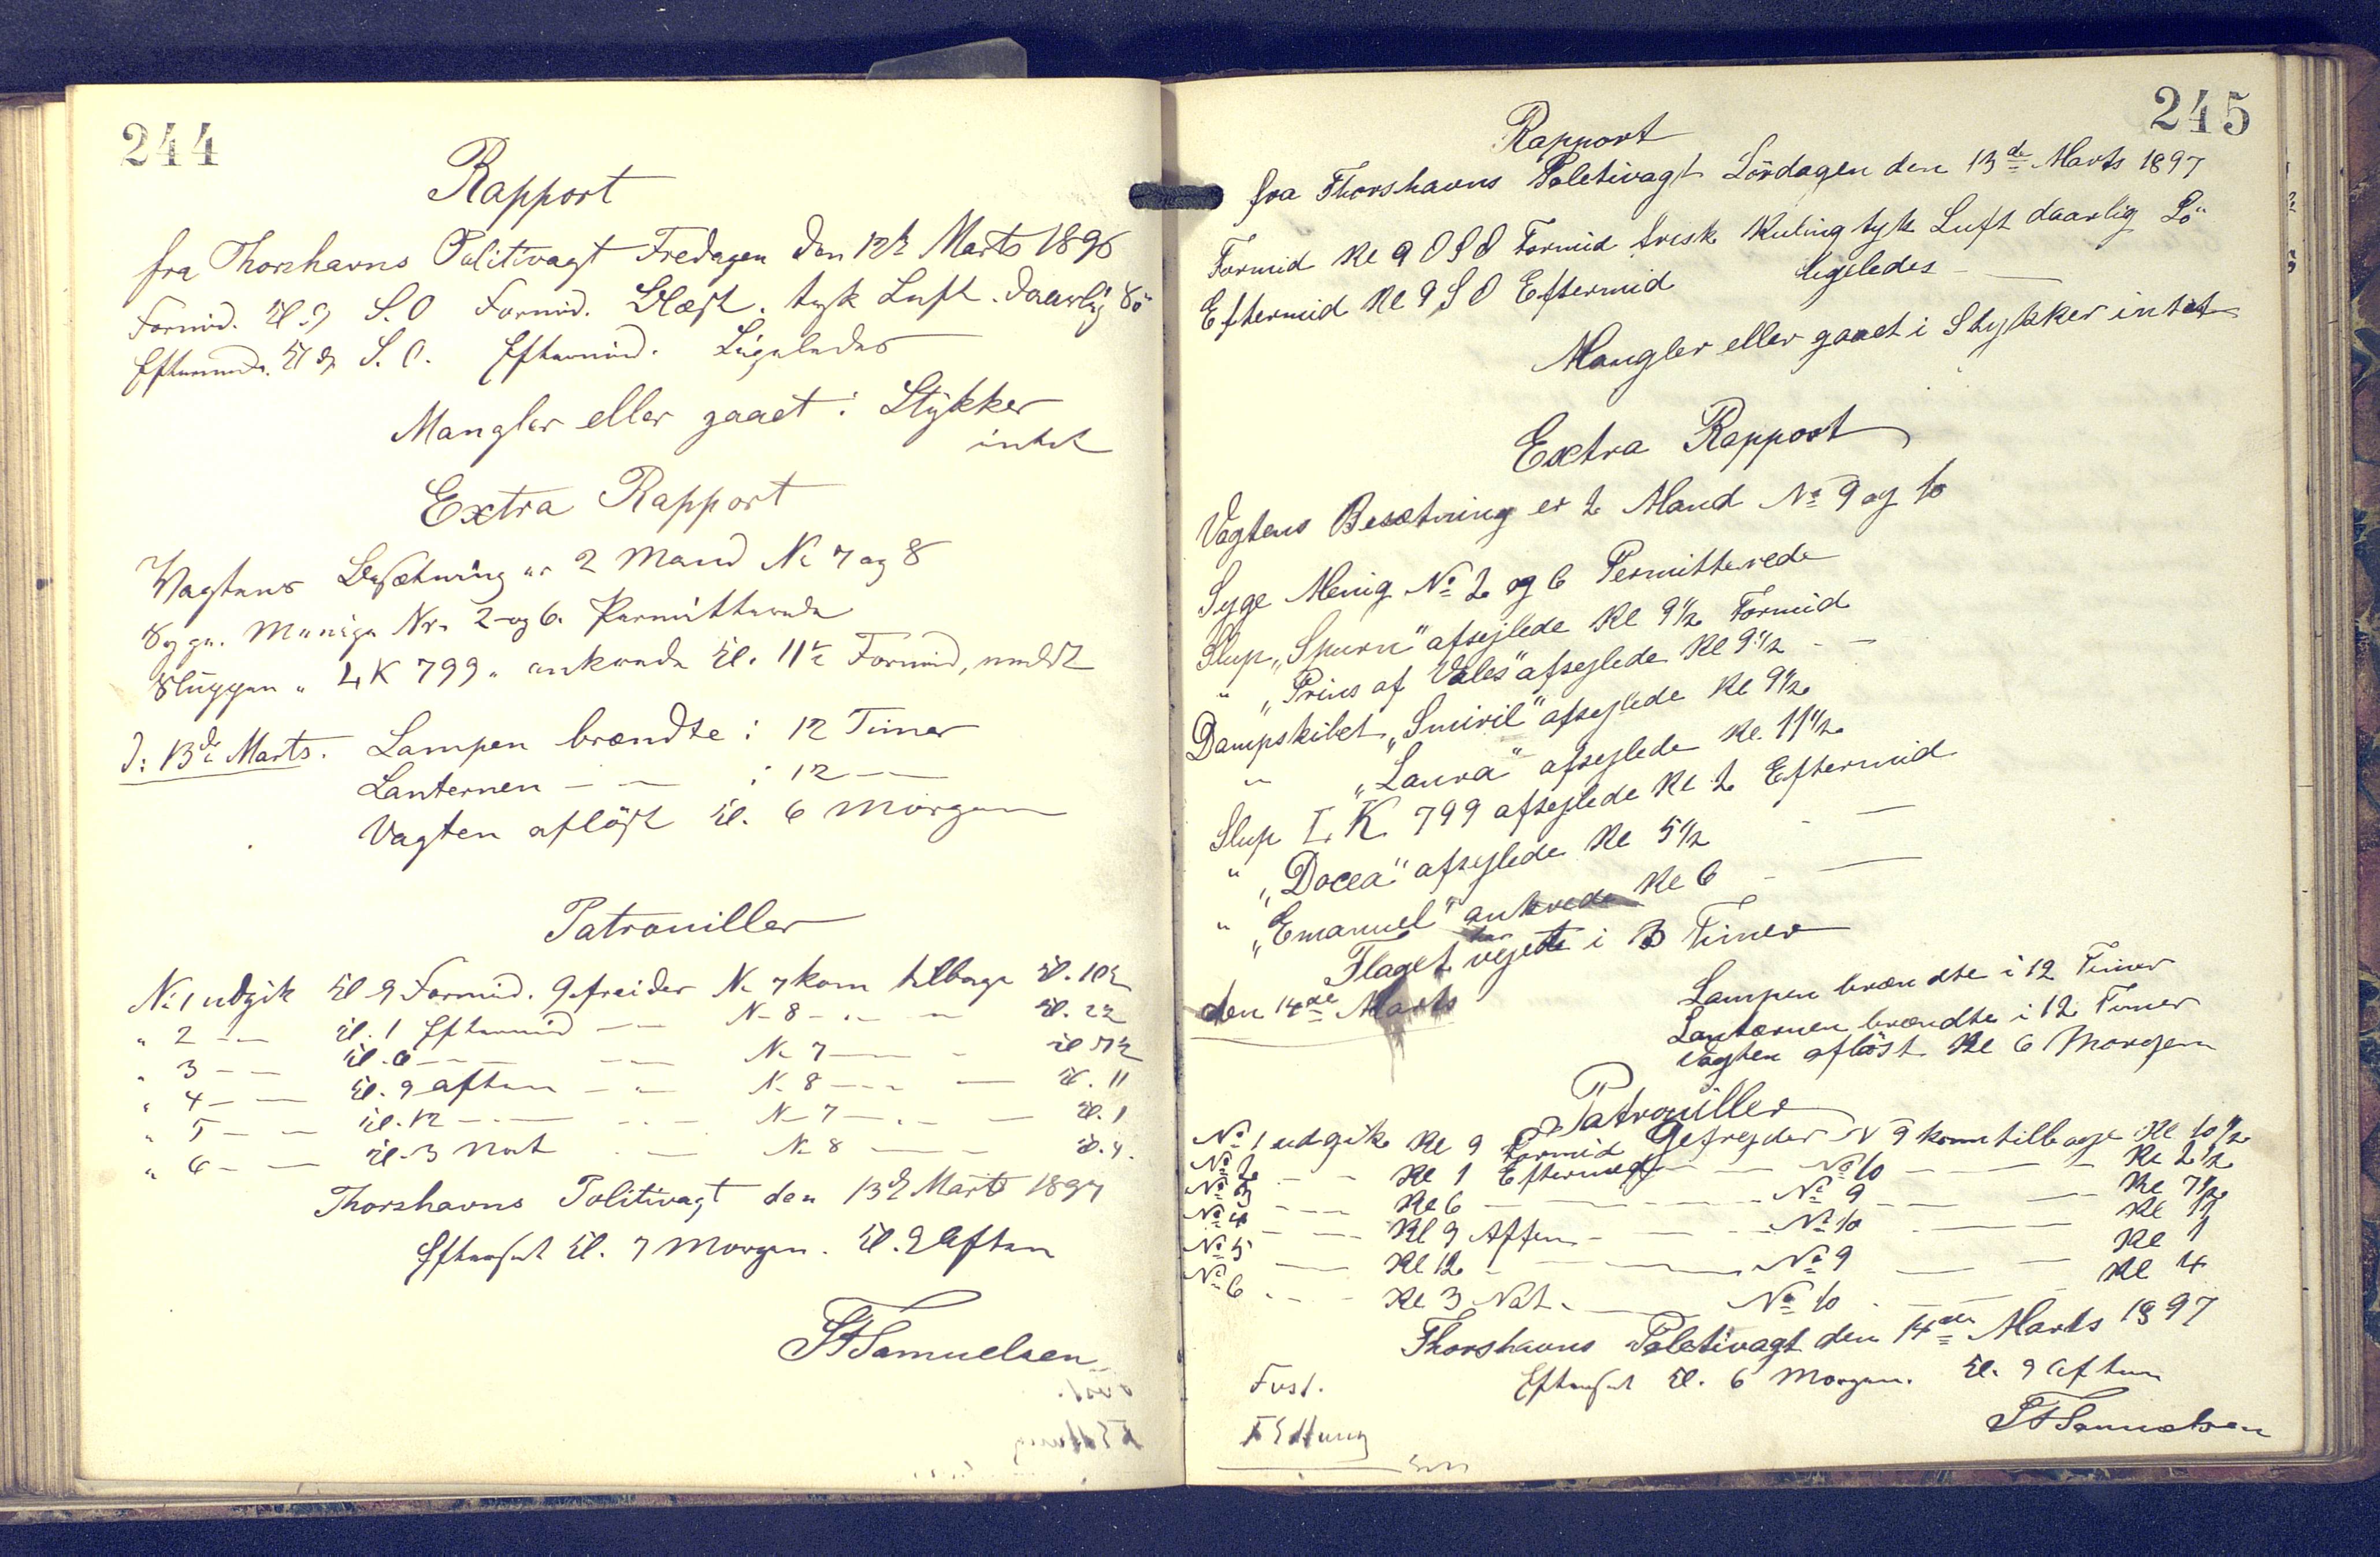 244
Rapport
fra Thorshavns Politivagt Fredagen den 12te Marts 1896
Formid. Kl. 9 S.O Formid. Blæst. tyk Luft. daarlig Sö
Eftermid. Kl 9 S.O. Eftermid. Ligeledes
Mangler eller gaaet i Stykker
intet
Extra Rapport
Vagtens Besætning er 2 Mand No 7 og 8
Syge. Menige Nr. 2 og 6. Permitterede
Sluppen „ LK 799 „ ankrede Kl. 11½ Formid,
d: 13de Marts. Lampen brændte i 12 Timer
Lanternen — — i 12 —
Vagten aflöst Kl. 6 Morgen
Patrouiller
No 1 udgik Kl 9 Formid. Gefreider No 7 kom tilbage Kl. 10½
„ 2 — — Kl. 1 Eftermid — — No 8 — — Kl. 2½
„ 3 — — Kl. 6 — — — No 7 — — Kl 7½
„ 4 — — Kl. 9 Aften — — No 8 — — Kl. 11
„ 5 — — Kl. 12 — — — No 7 — — Kl. 1
„ 6 — — Kl. 3 Nat — No 8 — — Kl. 4.
Thorshavns Politivagt den 13de Marts 1897
Efterset Kl. 7 Morgen. Kl. 9 Aften
Samuelsen
245
Rapport
fra Thorshavns Poletivagt Lördagen den 13de Marts 1897
Formid Kl 9 OSO Formid frisk Kuling tyk Luft daarlig Sö
Eftermid Kl 9 SO Eftermid ligeledes —
Mangler eller gaaet i Stykker intet
Extra Rapport
Vagtens Besætning er 2 Mand No 9 og 10
Syge Menig No 2 og 6 Permitterede
Slup „Spurn" afsejlede Kl 9½ Formid
„ „Prins af Vales" afsejlede Kl 9½ — —
Dampskibet „Smiril" afsejlede Kl 9½
„ „Laura" afsejlede Kl. 11½
Slup L.K. 799 afsejlede Kl 2 Eftermid
„ „Docea" afsejlede Kl 5½ — —
„ „Emanuel" ankrede Kl 6 — —
Flaget har vejet i 3 Timer
den 14de Marts
Lampen brændte i 12 Timer
Lanternen brændte i 12 Timer
Vagten aflöst Kl 6 Morgen
Patrouiller
No 1 udgik Kl 9 Formid Gefrejder N 9 kom tilbage Kl 10½
No 2 — — Kl 1 Eftermid — — No 10 — — Kl 2½
No 3 — — Kl 6 — — — No 9 — — Kl 7½
No 4 — — Kl 9 Aften — — No 10 — — Kl 12
No 5 — — Kl 12 — — No 9 — — Kl 1
No 6 — — Kl 3 Nat — No 10 — — Kl 4
Thorshavns Poletivagt den 14de Marts 1897
Efterset Kl. 6 Morgen. Kl. 9 Aften
Samuelsen